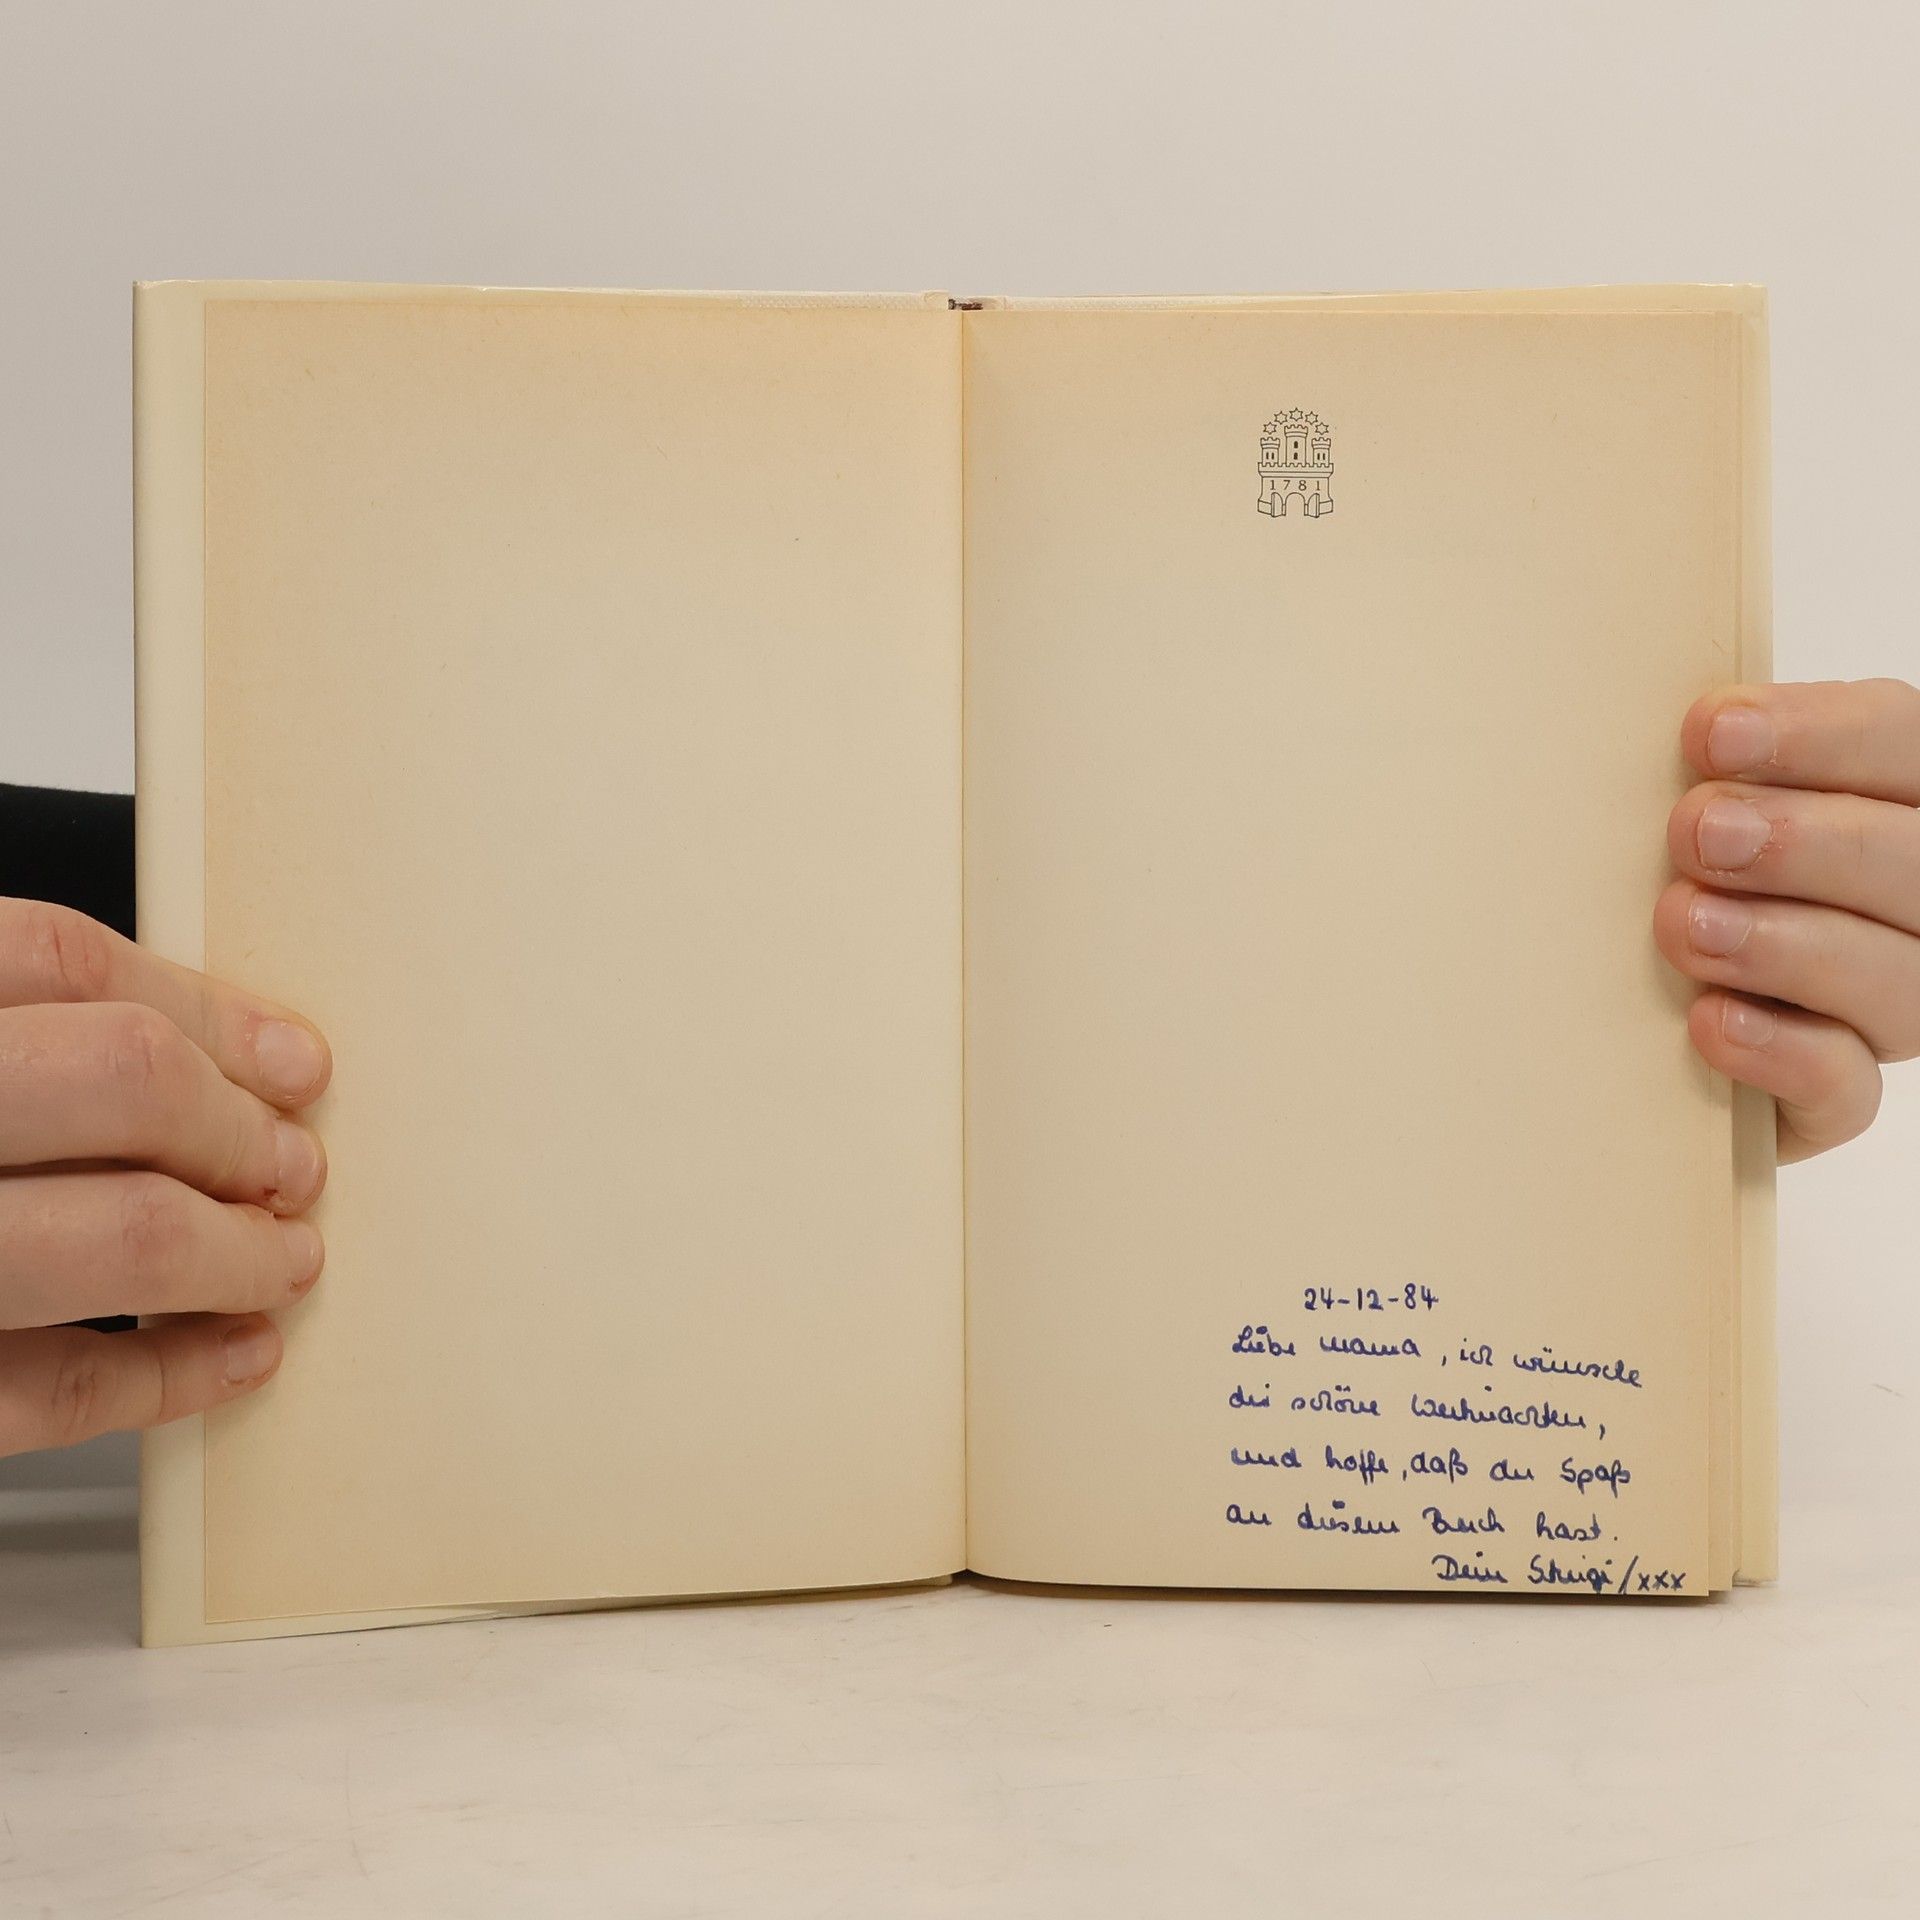 1781
24-12-84
Liebe mama, ich wünsche
dir schöne Weihnachten,
und hoffe, daß du Spaß
an diesem Buch hast.
Dein /xxx